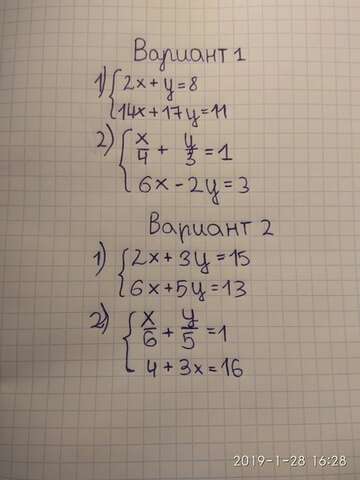 Вариант 1
1) { 2x + y = 8
14x + 17y = 11
2) { x/4 + y/3 = 1
6x - 2y = 3
Вариант 2
1) { 2x + 3y = 15
6x + 5y = 13
2) { x/6 + y/5 = 1
4 + 3x = 16
2019-1-28 16:28